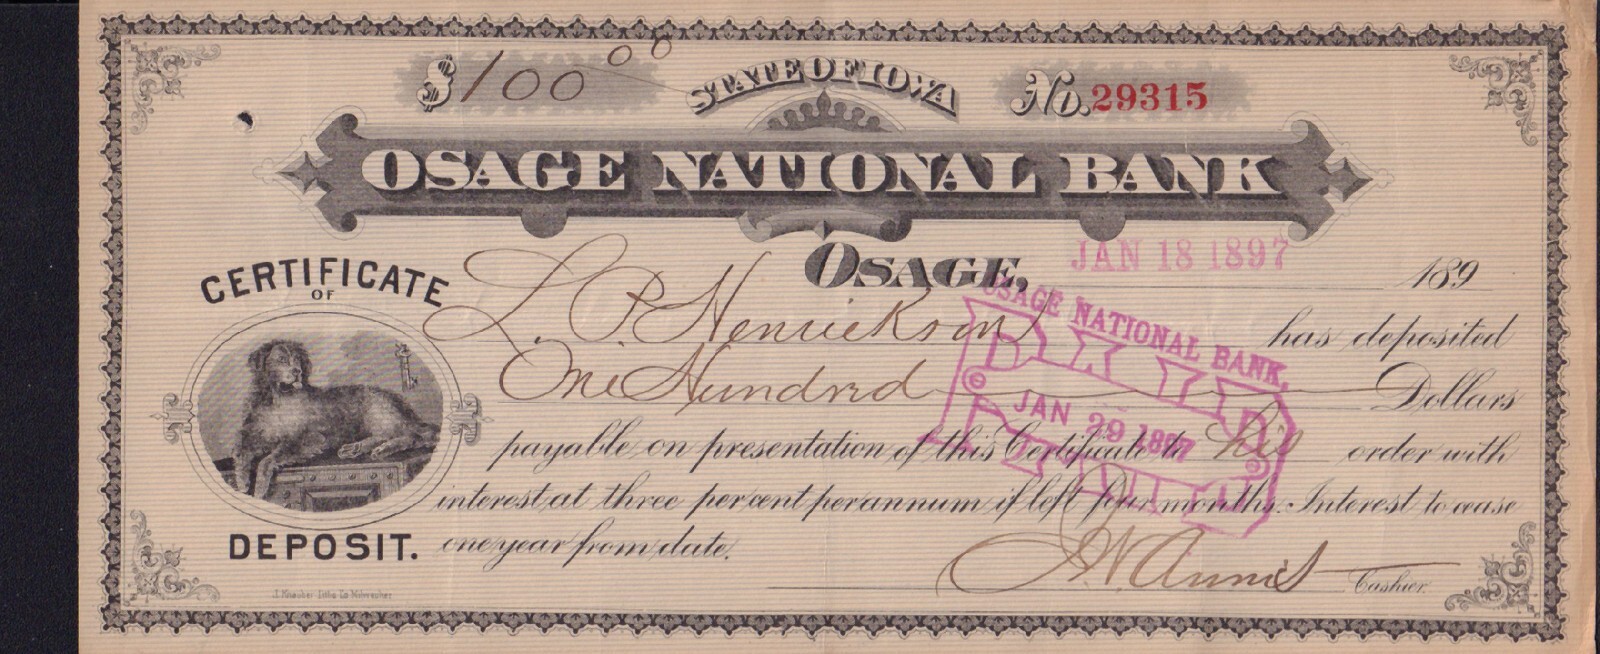 $100 00 STATE OF IOWA No. 29315
OSAGE NATIONAL BANK
OSAGE, JAN 18 1897 189
CERTIFICATE OF DEPOSIT.
L. P. Henrickson has deposited
One Hundred Dollars
payable on presentation of this Certificate to his order with
interest at three per cent per annum if left four months. Interest to cease
one year from date.
Cashier.
OSAGE NATIONAL BANK,
PAID
JAN 29 1897